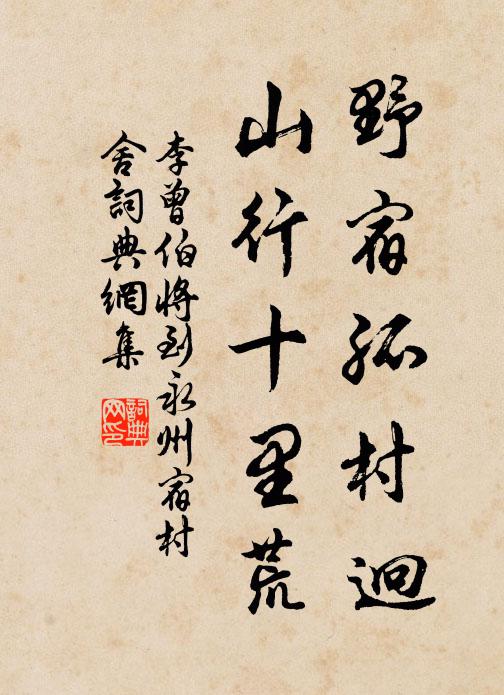 野宿孤村迥
山行十里荒
李曾伯將到永州宿村
舍詞典網集
詞典
网印